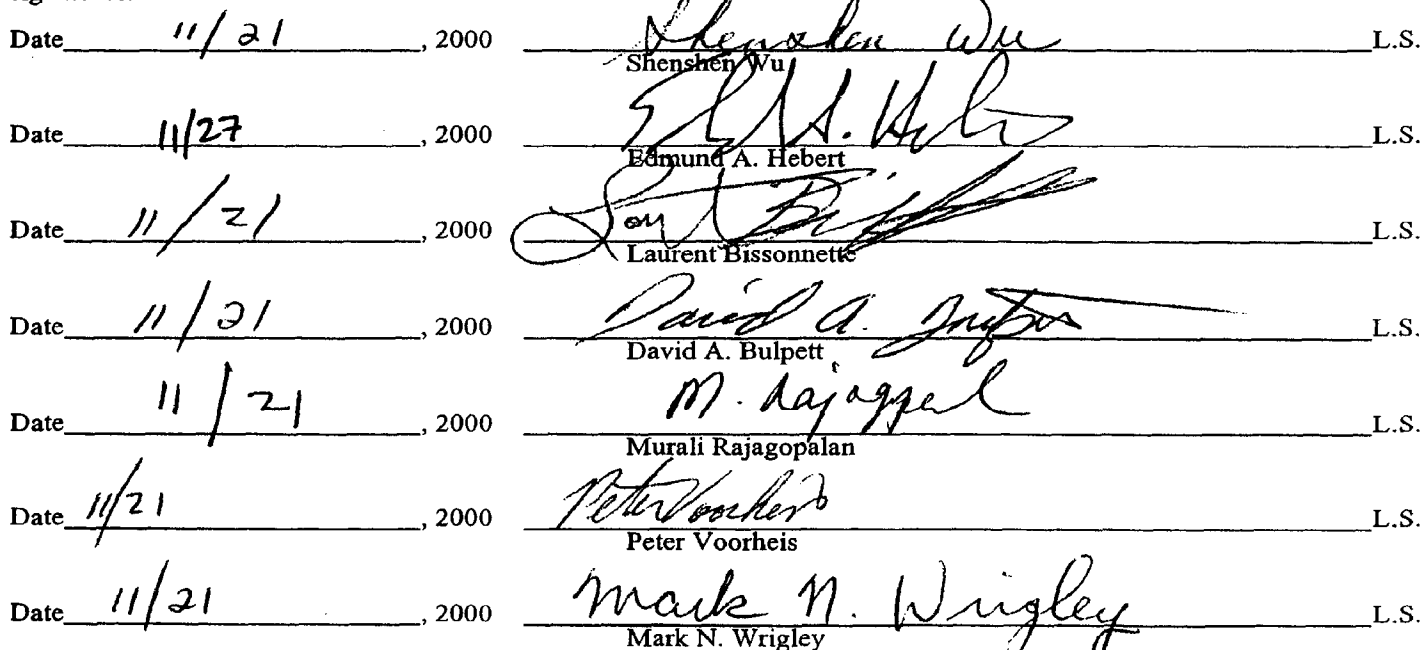 Date 11/21, 2000 Shenshen Wu L.S.
Shenshen Wu
Date 11/27, 2000 Ed A. Hebert L.S.
Edmund A. Hebert
Date 11/21, 2000 L.S.
Laurent Bissonnette
Date 11/21, 2000 David A. L.S.
David A. Bulpett
Date 11/21, 2000 M. Rajagopal L.S.
Murali Rajagopalan
Date 11/21, 2000 Peter Voorheis L.S.
Peter Voorheis
Date 11/21, 2000 Mark N. Wrigley L.S.
Mark N. Wrigley